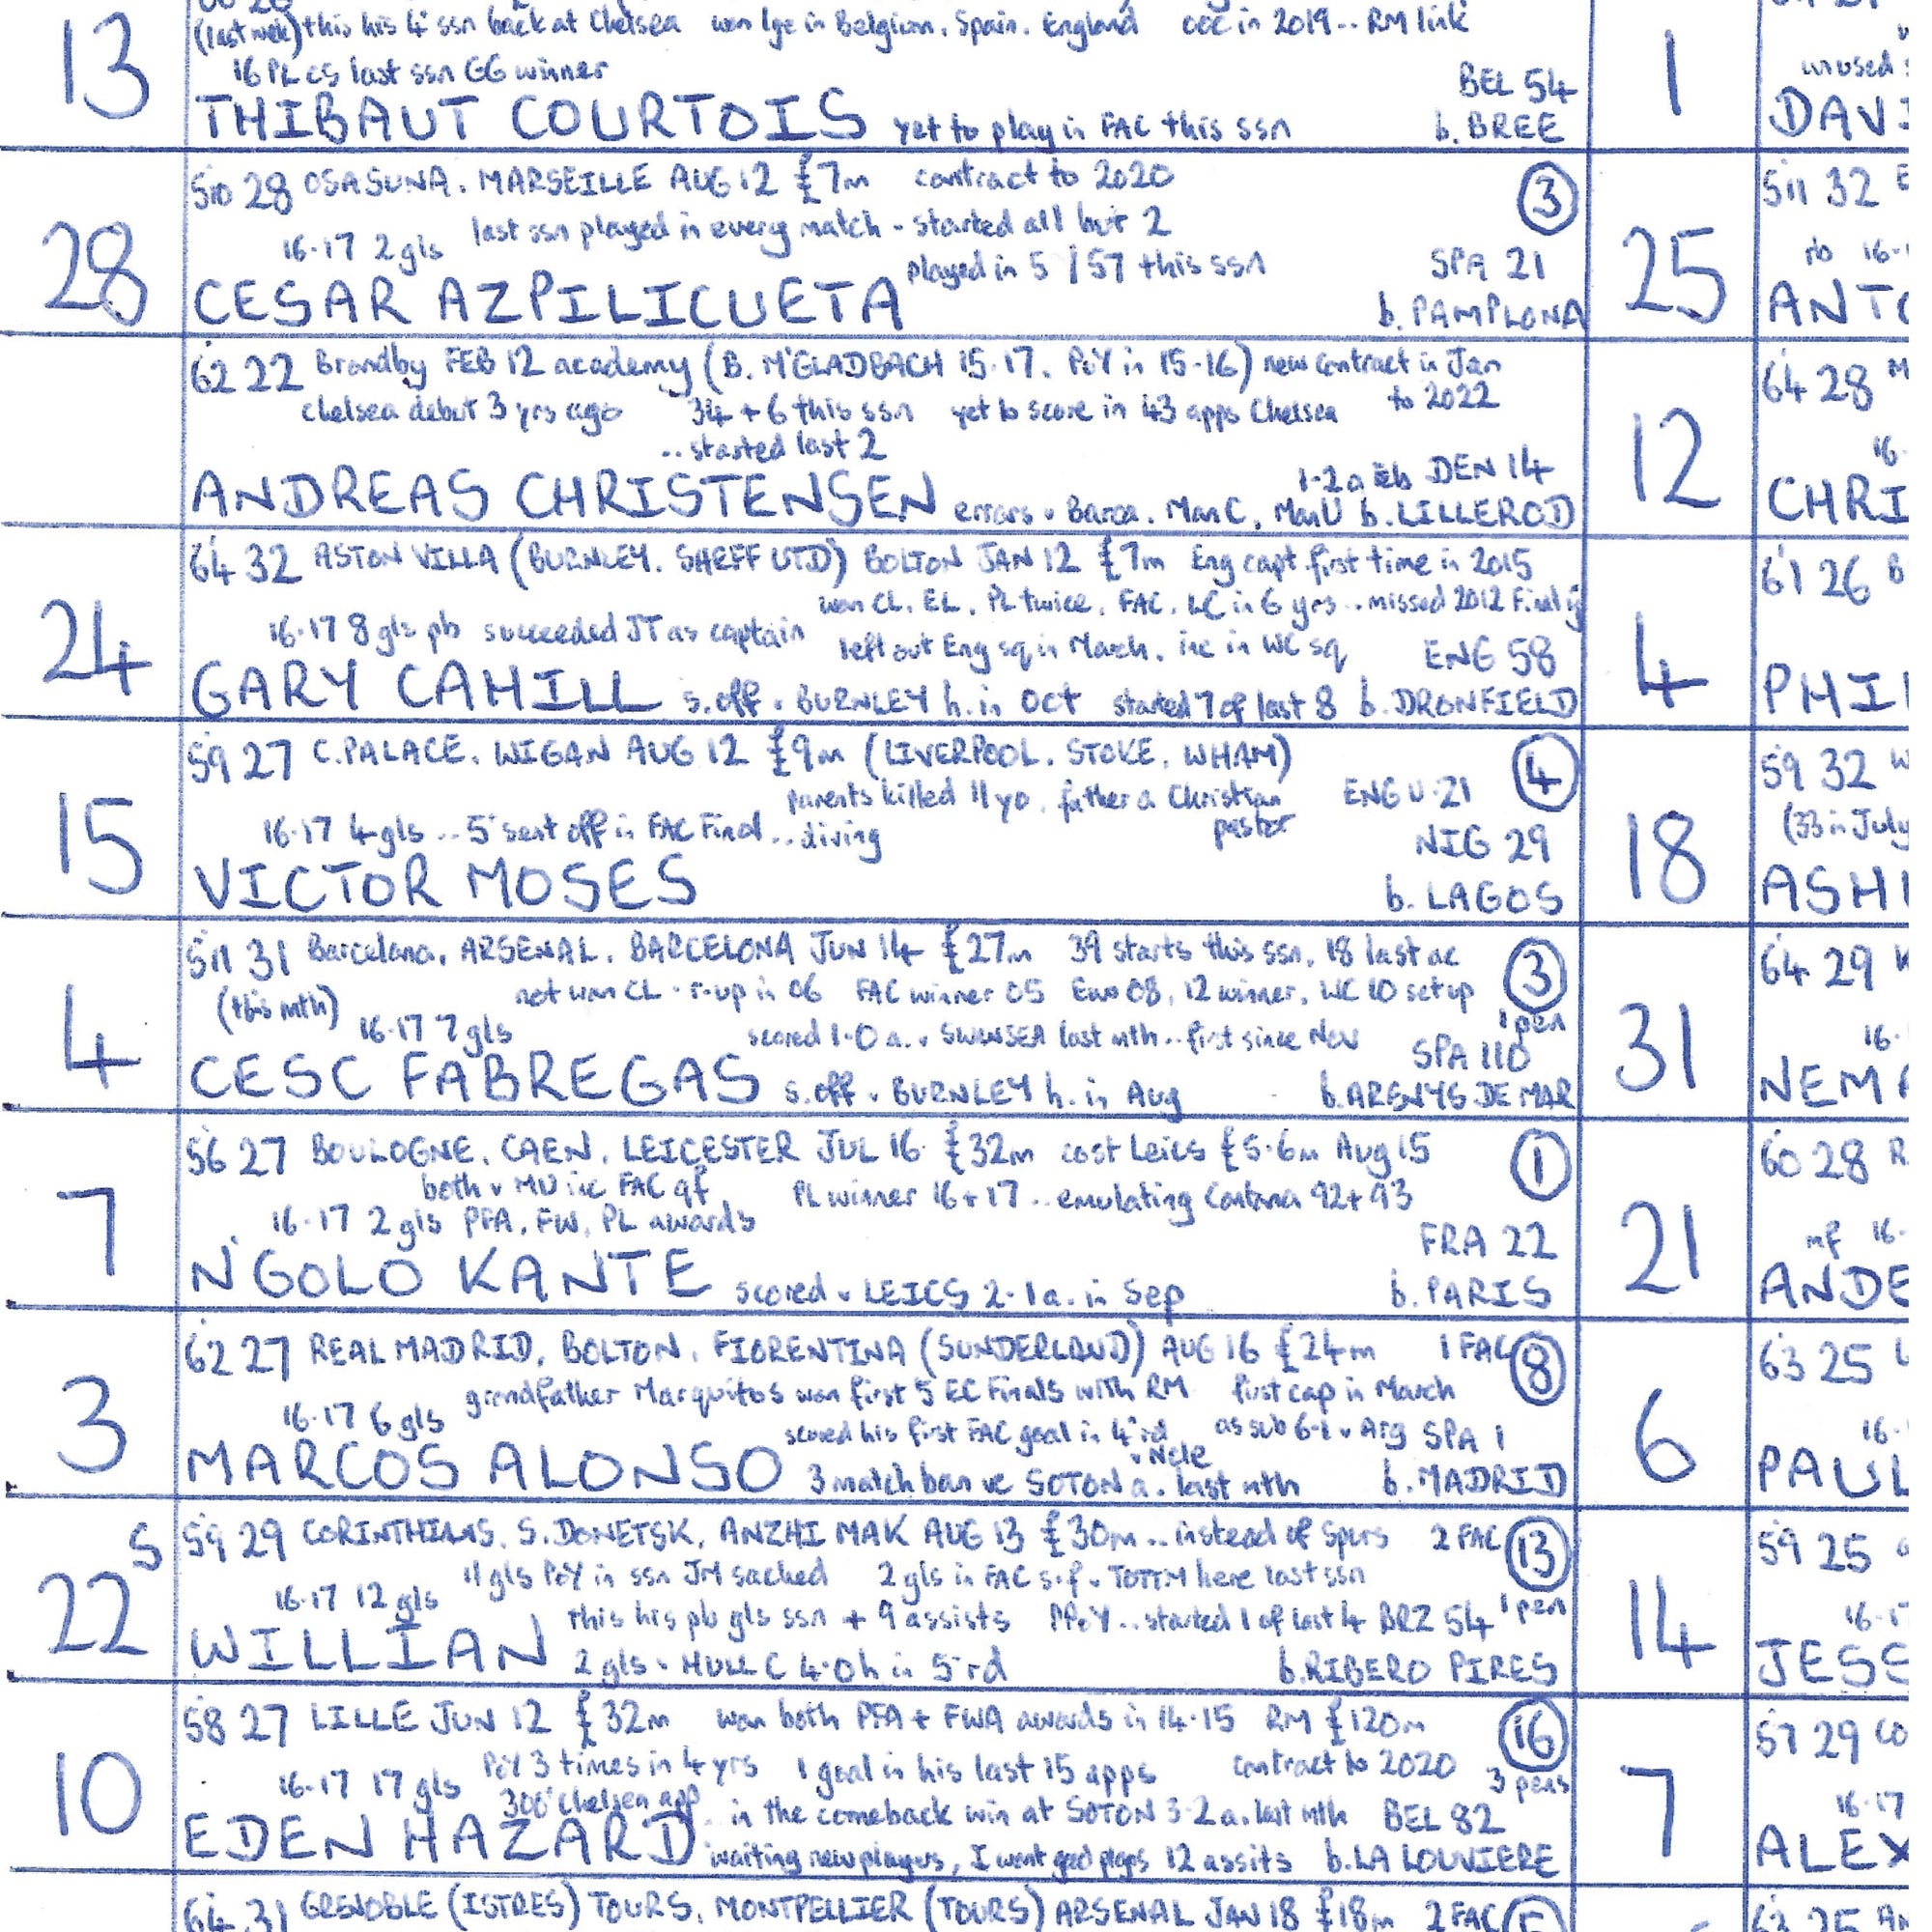 13
(last week) this his 4th ssn back at Chelsea won lge in Belgium, Spain, England OOC in 2019.. RM link
16 PL cs last ssn GG winner
BEL 54
THIBAUT COURTOIS yet to play in FAC this ssn b. BREE
28
510 28 OSASUNA, MARSEILLE AUG 12 £7m contract to 2020 3
16-17 2 gls last ssn played in every match - started all but 2
played in 51/57 this ssn SPA 21
CESAR AZPILICUETA b. PAMPLONA
62 22 Brondby FEB 12 academy (B. M'GLADBACH 15-17, PoY in 15-16) new contract in Jan
Chelsea debut 3 yrs ago 34 + 6 this ssn yet to score in 43 apps Chelsea to 2022
.. started last 2
1-2 a DEN 14
ANDREAS CHRISTENSEN errors v Barca, Man C, Man U b. LILLEROD
24
64 32 ASTON VILLA (BURNLEY, SHEFF UTD) BOLTON JAN 12 £7m Eng capt first time in 2015
won CL, EL, PL twice, FAC, LC in 6 yrs .. missed 2012 Final inj
16-17 8 gls pb succeeded JT as captain left out Eng sq in March, inc in WC sq ENG 58
GARY CAHILL s. off v BURNLEY h. in OCT started 7 of last 8 b. DRONFIELD
15
59 27 C. PALACE, WIGAN AUG 12 £9m (LIVERPOOL, STOKE, WHAM) 4
parents killed 11 yo, father a Christian pastor ENG U-21
16-17 4 gls .. 5th sent off in FAC Final .. diving NIG 29
VICTOR MOSES b. LAGOS
4
511 31 Barcelona, ARSENAL, BARCELONA JUN 14 £27m 39 starts this ssn, 18 last ac 3
(this mth) not won CL - r-up in 06 FAC winner 05 Euro 08, 12 winner, WC 10 set up 1 pen
16-17 7 gls scored 1-0 a. v SWANSEA last mth .. first since Nov SPA 110
CESC FABREGAS s. off v BURNLEY h. in Aug b. ARENYS DE MAR
7
56 27 BOULOGNE, CAEN, LEICESTER JUL 16 £32m cost Leics £5.6m Aug 15 1
both v MU inc FAC qf PL winner 16 + 17 .. emulating Cantona 92 + 93
16-17 2 gls PFA, FW, PL awards FRA 22
N'GOLO KANTE scored v LEICS 2-1 a. in Sep b. PARIS
3
62 27 REAL MADRID, BOLTON, FIORENTINA (SUNDERLAND) AUG 16 £24m 1 FAC 8
16-17 6 gls grandfather Marquitos won first 5 EC Finals with RM first cap in March
scored his first FAC goal in 4th rd v Ncle as sub 6-1 v Arg SPA 1
MARCOS ALONSO 3 match ban vc SOTON a. last mth b. MADRID
S
22
59 29 CORINTHIANS, S. DONETSK, ANZHI MAK AUG 13 £30m .. instead of Spurs 2 FAC 13
11 gls PoY in ssn JM sacked 2 gls in FAC s-f v TOTTM here last ssn
16-17 12 gls this his pb gls ssn + 9 assists PPoY .. started 1 of last 4 BRZ 54 1 pen
WILLIAN 2 gls v HULL C 4-0 h in 5th rd b. RIBERO PIRES
10
58 27 LILLE JUN 12 £32m won both PFA + FWA awards in 14-15 RM £120m 16
16-17 17 gls PoY 3 times in 4 yrs 1 goal in his last 15 apps contract to 2020 3 pens
300th Chelsea app .. in the comeback win at SOTON 3-2 a. last mth BEL 82
EDEN HAZARD waiting new players, I want good players 12 assits b. LA LOUVIERE
64 31 GRENOBLE (ISTRES) TOURS, MONTPELLIER (TOURS) ARSENAL JAN 18 £18m 2 FAC
1
unused
DAVI
25
511 32 E
rb 16-1
ANTO
12
64 28 M
16-
CHRI
4
61 26 B
PHI
18
59 32 W
(33 in July
ASH
31
64 29 K
16-
NEMA
21
60 28 R
mf 16-
ANDE
6
63 25 L
16-
PAUL
14
59 25
16-17
JESS
7
57 29 CO
16-17
ALEX
63 25